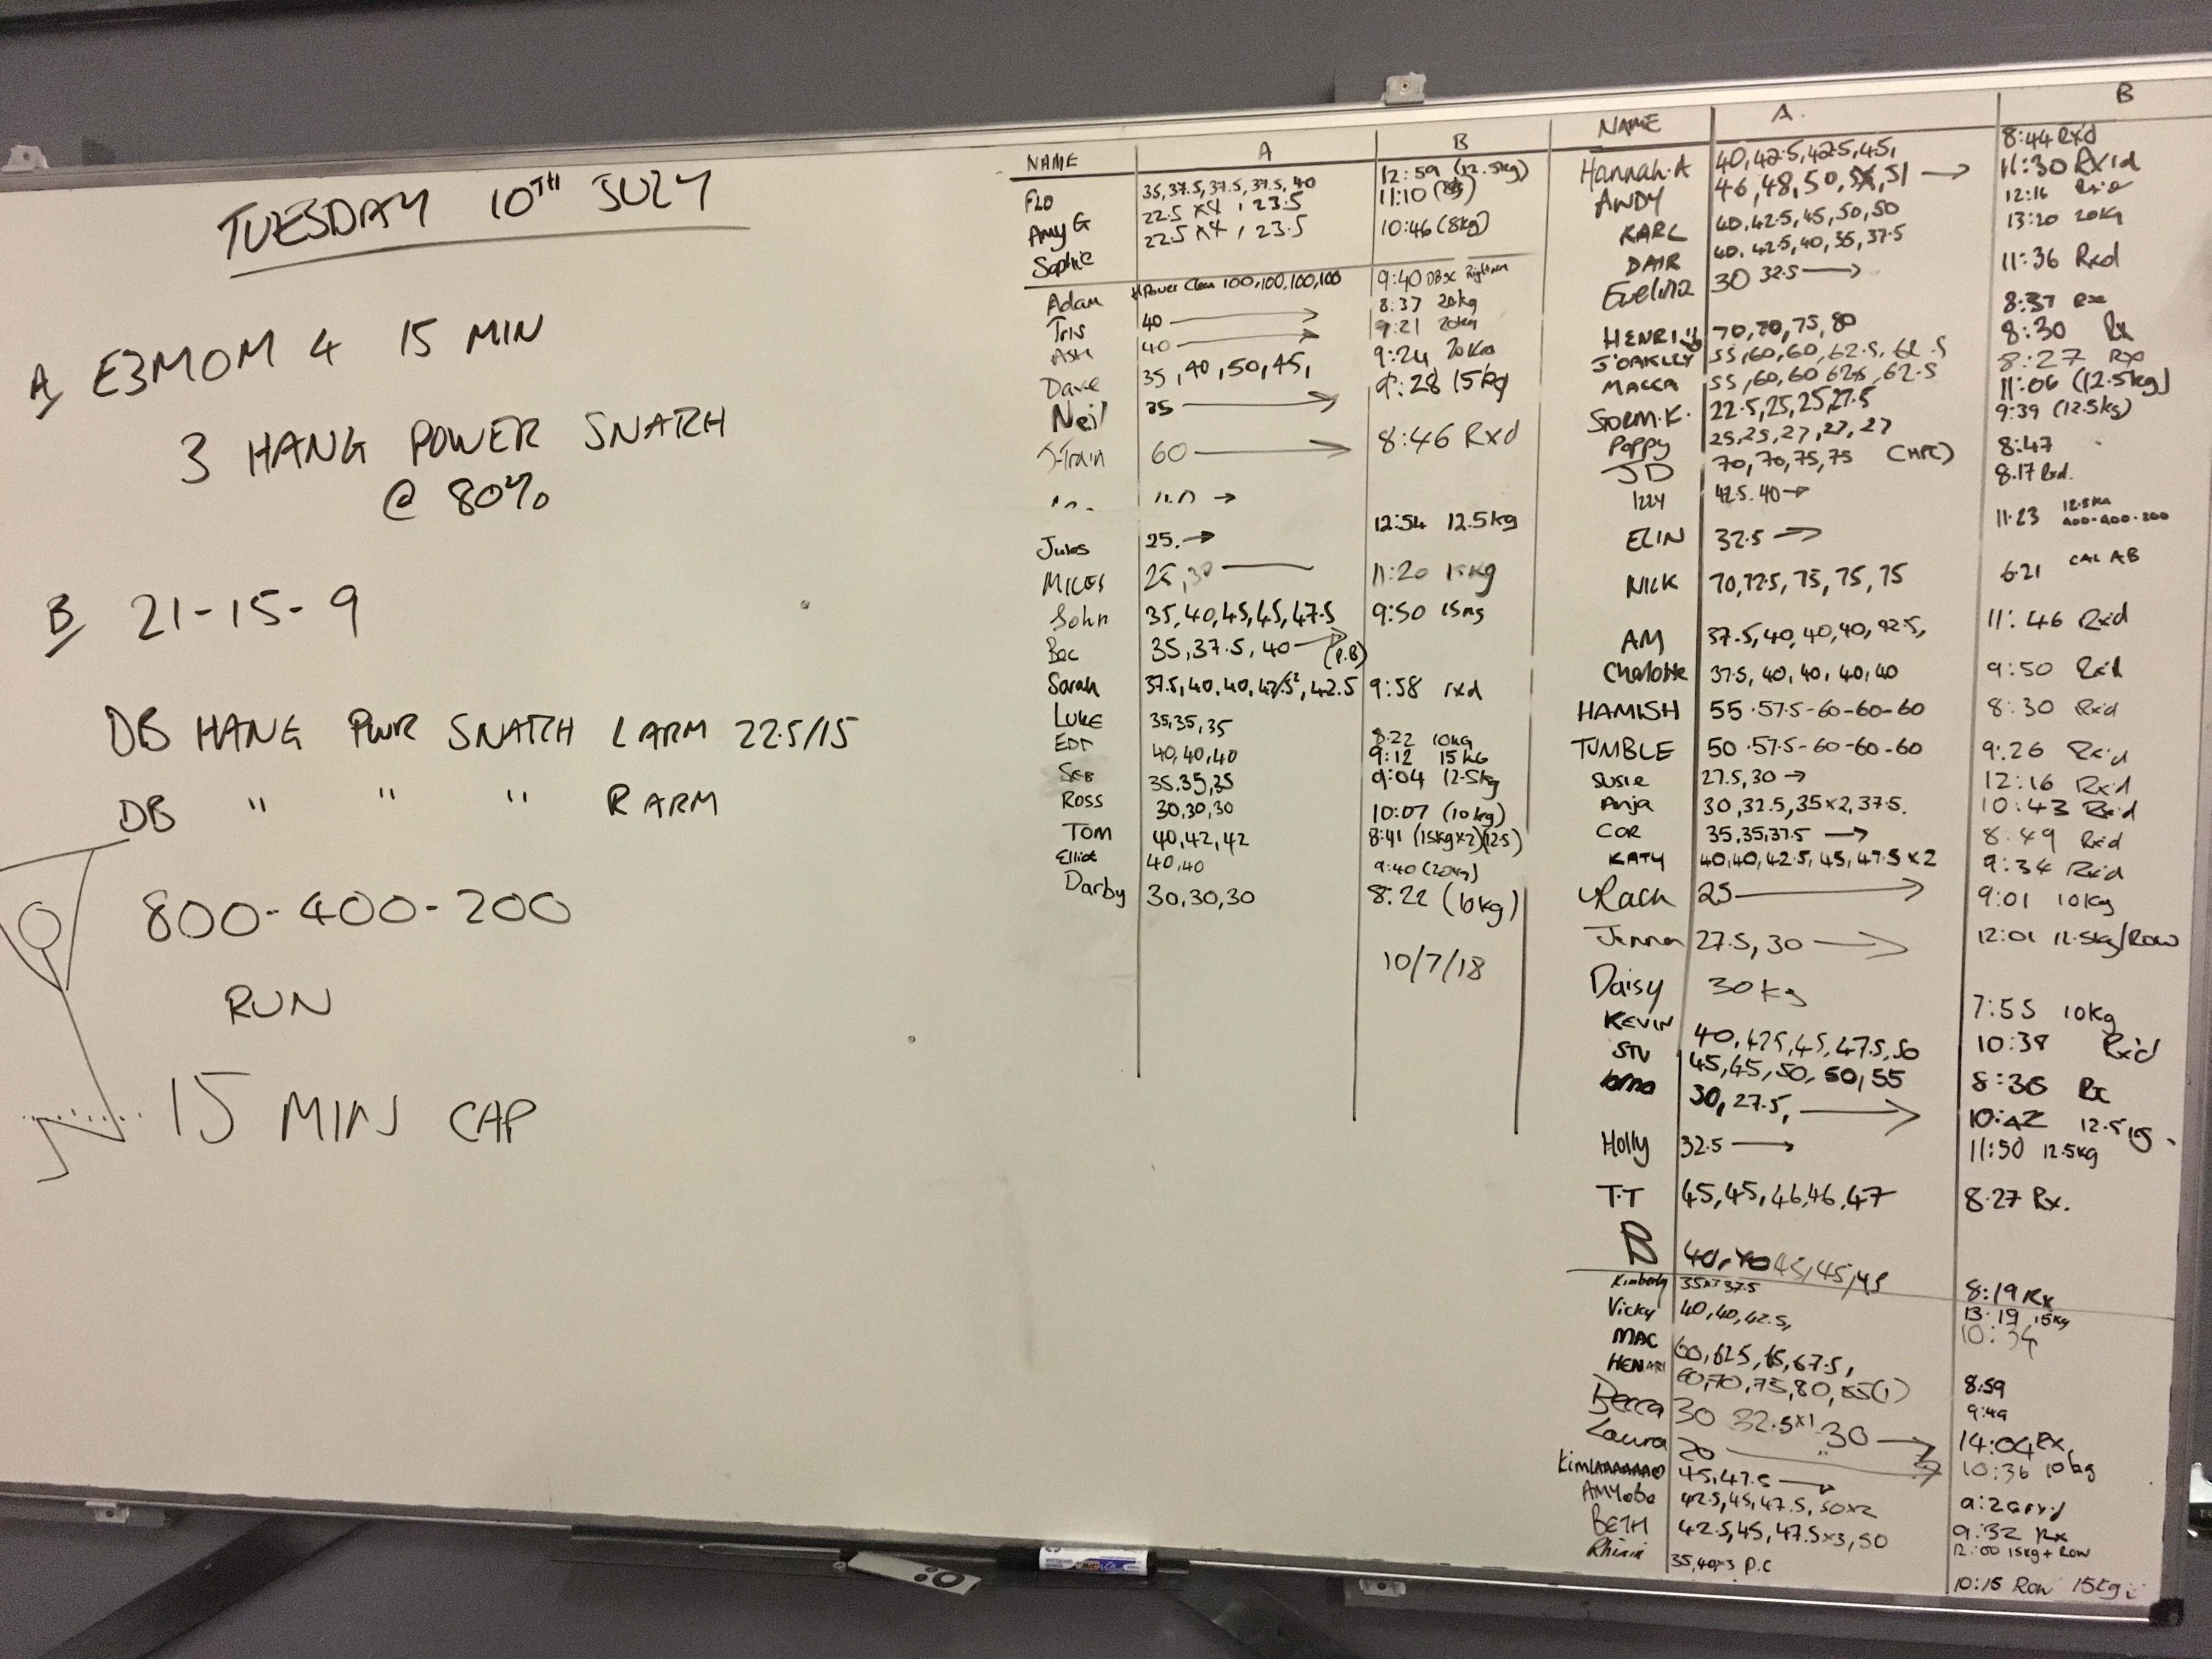 TUESDAY 10TH JULY
A E3MOM 4 15 MIN
3 HANG POWER SNATCH
@ 80%
B 21-15-9
DB HANG PWR SNATCH L ARM 22.5/15
DB " " " R ARM
800-400-200
RUN
15 MIN CAP
NAME A B
FLO 35, 37.5, 37.5, 37.5, 40 12:59 (12.5kg)
Amy G 22.5 x4, 23.5 11:10
Sophie 22.5 x4, 23.5 10:46 (8kg)
Adam Power Clean 100,100,100,100 9:40
Tris 40 → 8:37 20kg
ASH 40 → 9:21 20kg
Dave 35, 40, 50, 45, 9:24 20kg
Neil 35 → 9:28 15kg
J-Train 60 → 8:46 Rxd
Jules 25. → 12:54 12.5kg
MILES 25, 30 11:20 15kg
John 35, 40, 45, 45, 47.5 9:50
Bec 35, 37.5, 40 → (P.B)
Sarah 37.5, 40, 40, 42.5, 42.5 9:58 rxd
LUKE 35,35,35
8:22 10KG
40,40,40 9:12 15KG
SEB 35.35,35 9:04 12.5kg
ROSS 30,30,30 10:07 (10kg)
TOM 40,42,42 8:41 (15kgx2)(12.5)
Elliot 40,40 9:40 (20kg)
Darby 30,30,30 8:22 (10kg)
10/7/18
NAME A. B
Hannah.A 40, 42.5, 42.5, 45, 8:44 Rx'd
ANDY 46, 48, 50, 51 → 11:30 Rx'd
KARL 40, 42.5, 45, 50, 50 12:16 Rx'd
DAIR 40, 42.5, 40, 35, 37.5 13:20 20KG
Evelina 30 32.5 → 11:36 Rxd
HENRI 70, 70, 75, 80 8:37 Rx
J'OAKLEY 55, 60, 60, 62.5, 62.5 8:30 Rx
MACCA 55, 60, 60 62.5, 62.5 8:27 Rx
STORM.K. 22.5, 25, 25, 27.5 11:06 (12.5kg)
Poppy 25, 25, 27, 27, 27 9:39 (12.5kg)
JD 70, 70, 75, 75 (HPC) 8:47
Izzy 42.5. 40 → 8.17 Rxd.
ELIN 32.5 → 11.23 12.5KG 400-400-200
NICK 70, 72.5, 75, 75, 75 6.21 CAL AB
AM 37.5, 40, 40, 40, 42.5, 11:46 Rxd
Charlotte 37.5, 40, 40, 40, 40 9:50 Rx'd
HAMISH 55 .57.5-60-60-60 8:30 Rx'd
TUMBLE 50 .57.5-60-60-60 9.26 Rx'd
Susie 27.5, 30 → 12:16 Rx'd
Anja 30, 32.5, 35x2, 37.5. 10:43 Rx'd
COR 35, 35, 37.5 → 8:49 Rx'd
KATY 40, 40, 42.5, 45, 47.5 x2 9:34 Rx'd
Rach 25 → 9:01 10kg
Jenna 27.5, 30 → 12:01 12.5kg/ROW
Daisy 30kg 7:55 10kg
KEVIN 40, 42.5, 45, 47.5, 50 10:38 Rx'd
STU 45, 45, 50, 50, 55 8:36 Rx
30, 27.5, → 10:42 12.5kg
Holly 32.5 → 11:50 12.5kg
T.T 45, 45, 46, 46, 47 8.27 Rx.
B 40, 40 45, 45, 45 8:19 Rx
Kimberly 35x3 37.5 13:19 15kg
Vicky 40, 40, 42.5, 10:34
MAC 60, 62.5, 65, 67.5, 8:59
HENARI 60, 70, 75, 80, 85(1) 9:49
Becca 30 32.5x1 30 → 14:04 Rx
Laura 20 → 10:36 10kg
45, 47.5 →
42.5, 45, 47.5, 50x2
BETH 42.5, 45, 47.5x3, 50 9:32 Rx
35, 40x3 P.C 12:00 15kg + ROW
10:15 Row 15kg